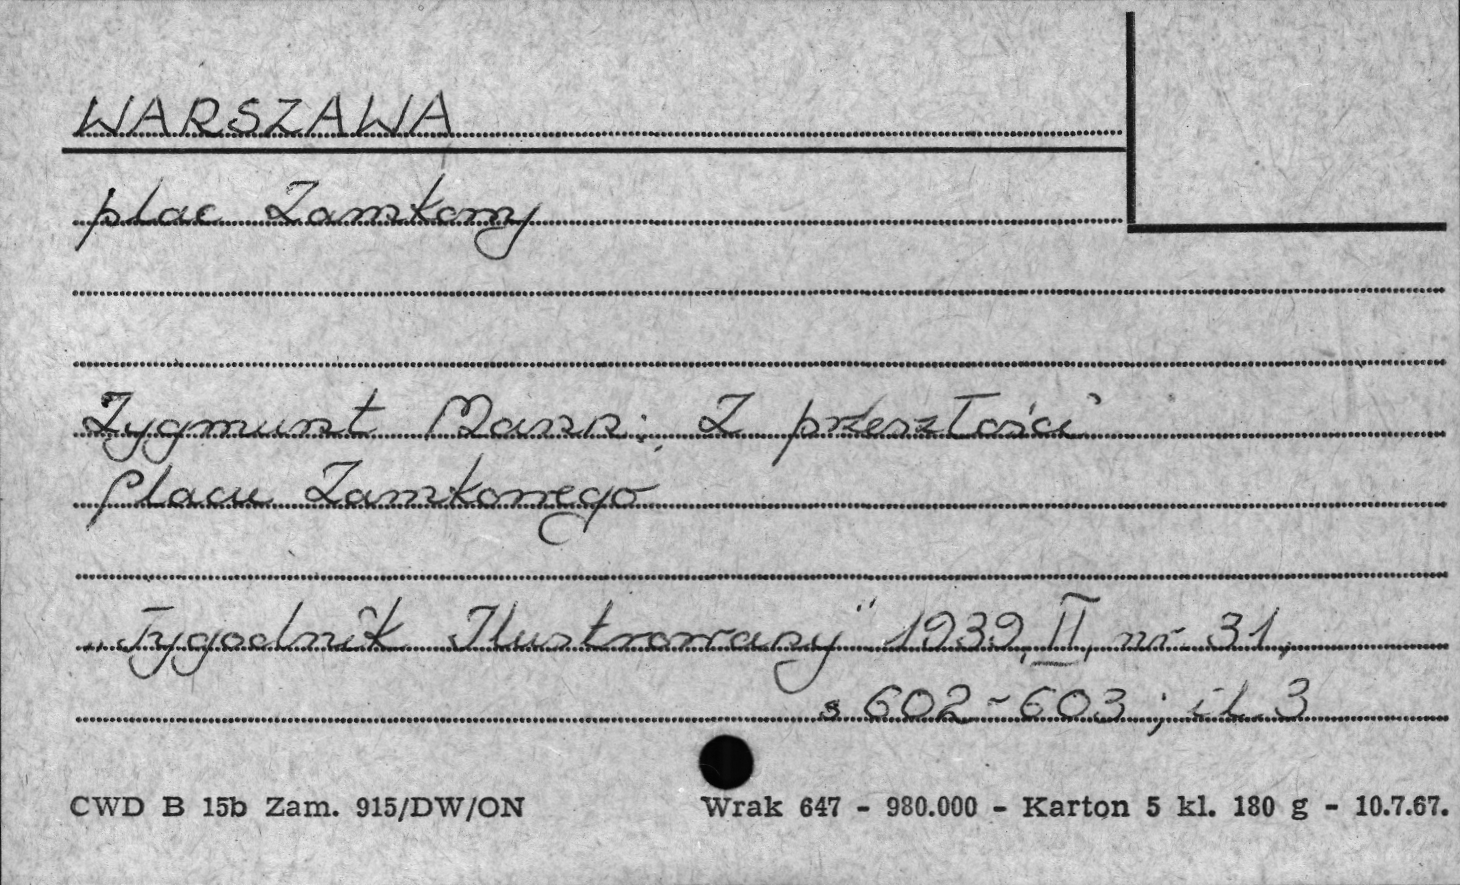 WARSZAWA
plac Zamkowy
Zygmunt Mann: Z przeszłości
Placu Zamkowego
„Tygodnik Ilustrowany" 1939, II, nr 31,
s 602-603; il. 3
CWD B 15b Zam. 915/DW/ON Wrak 647 - 980.000 - Karton 5 kl. 180 g - 10.7.67.